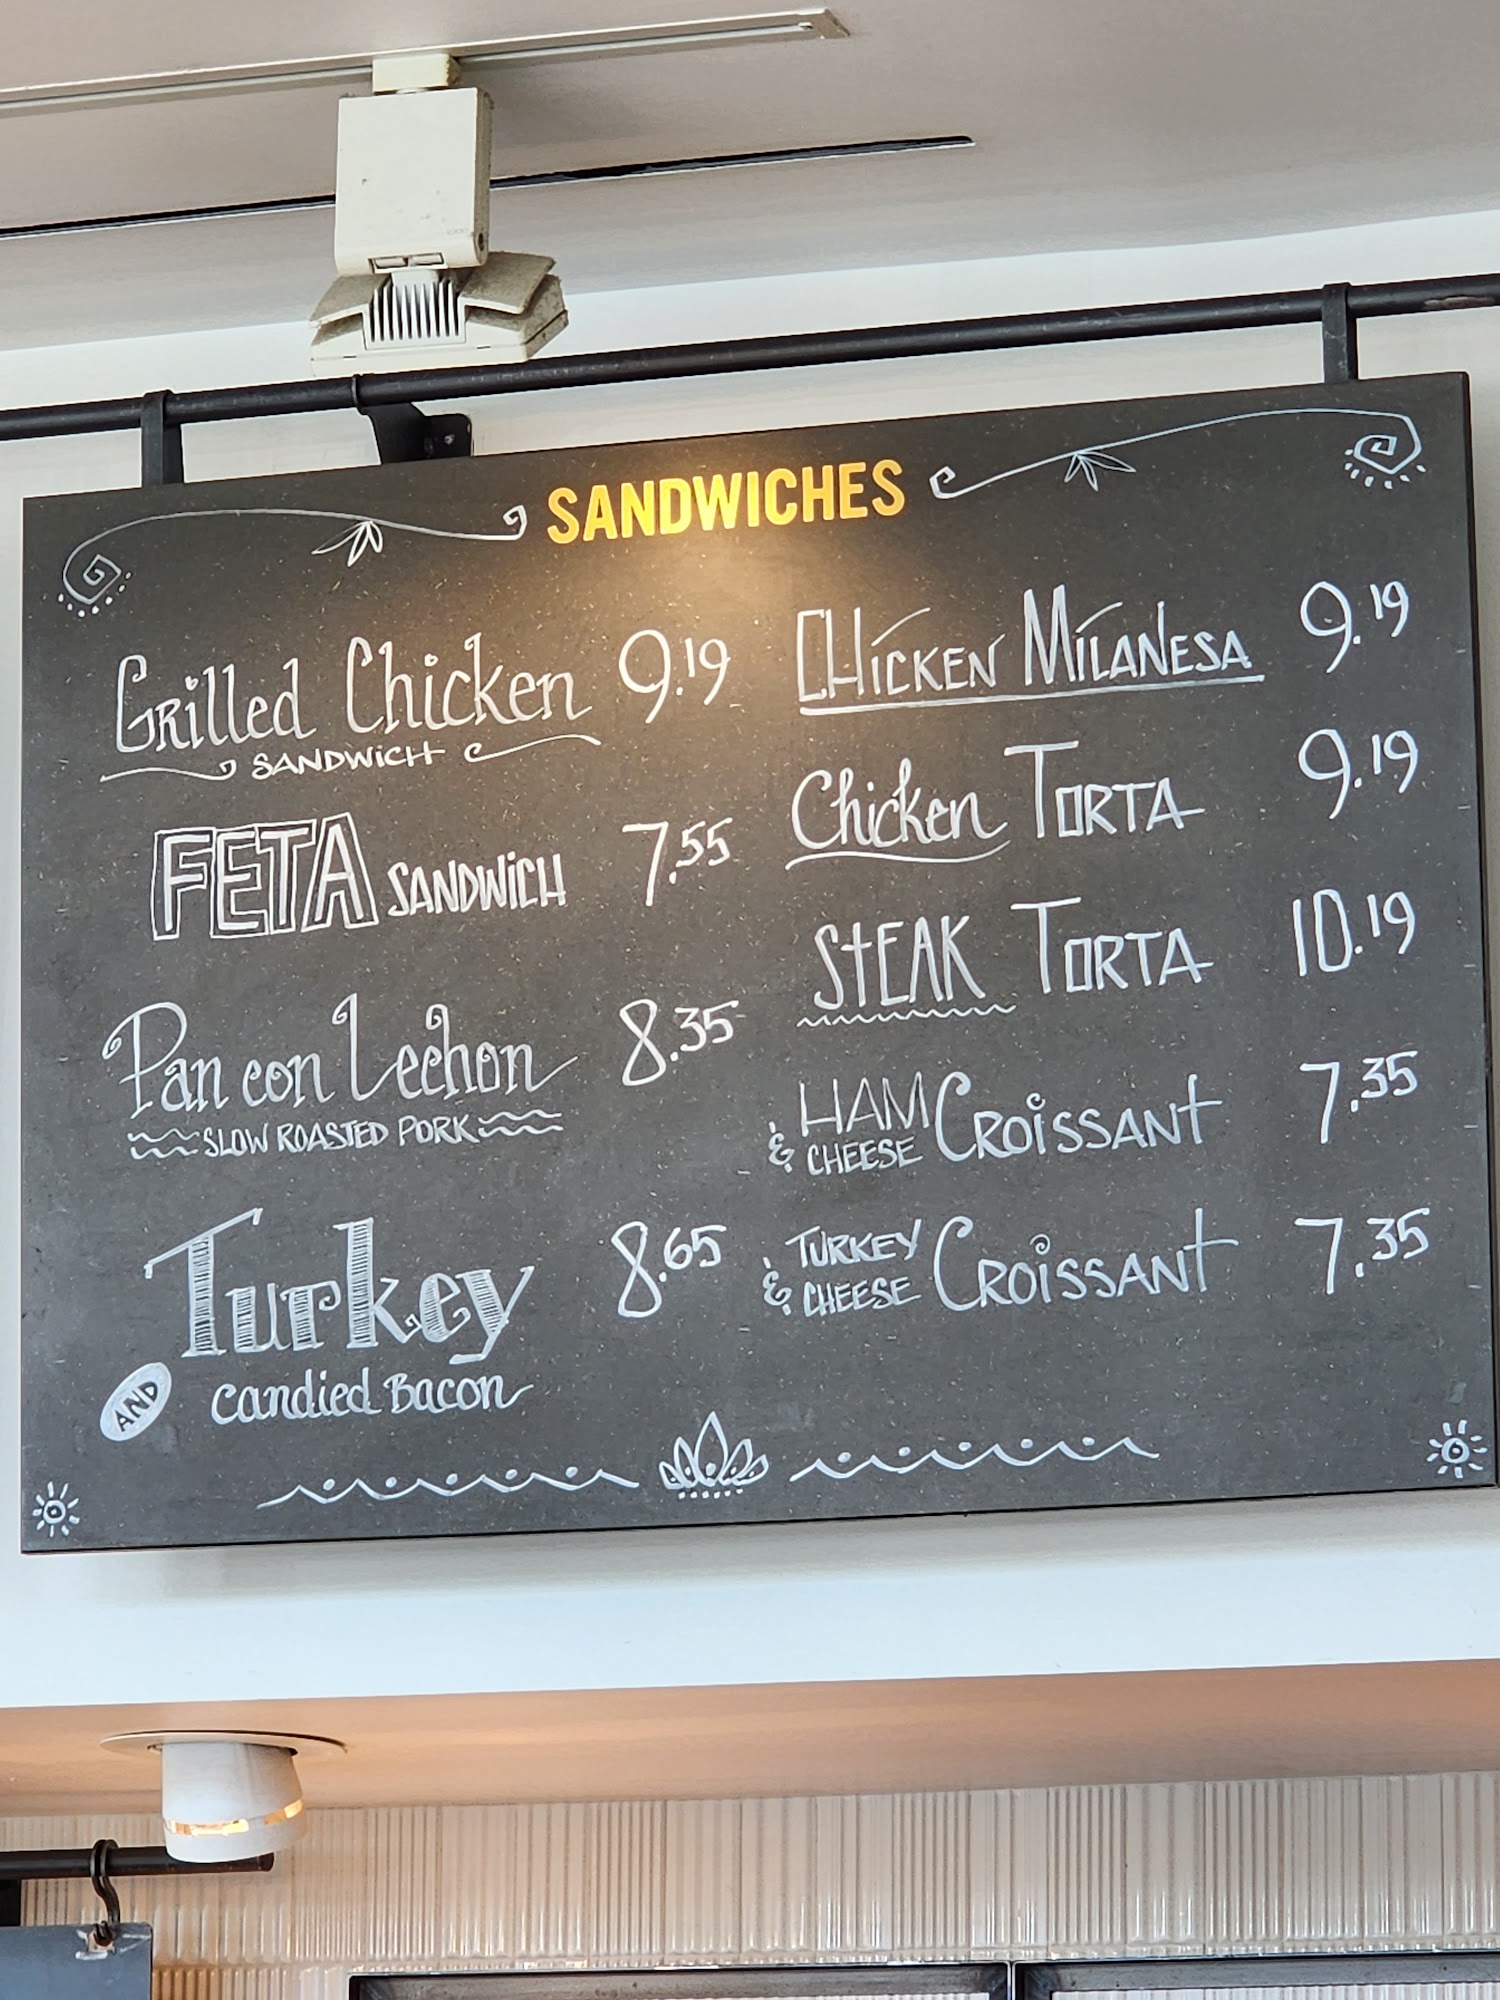 SANDWICHES
Grilled Chicken 9.19
SANDWICH
FETA SANDWICH 7.55
Pan con Lechon 8.35
SLOW ROASTED PORK
Turkey 8.65
AND Candied Bacon
CHICKEN MILANESA 9.19
Chicken TORTA 9.19
STEAK TORTA 10.19
HAM & CHEESE CROISSANT 7.35
TURKEY & CHEESE CROISSANT 7.35